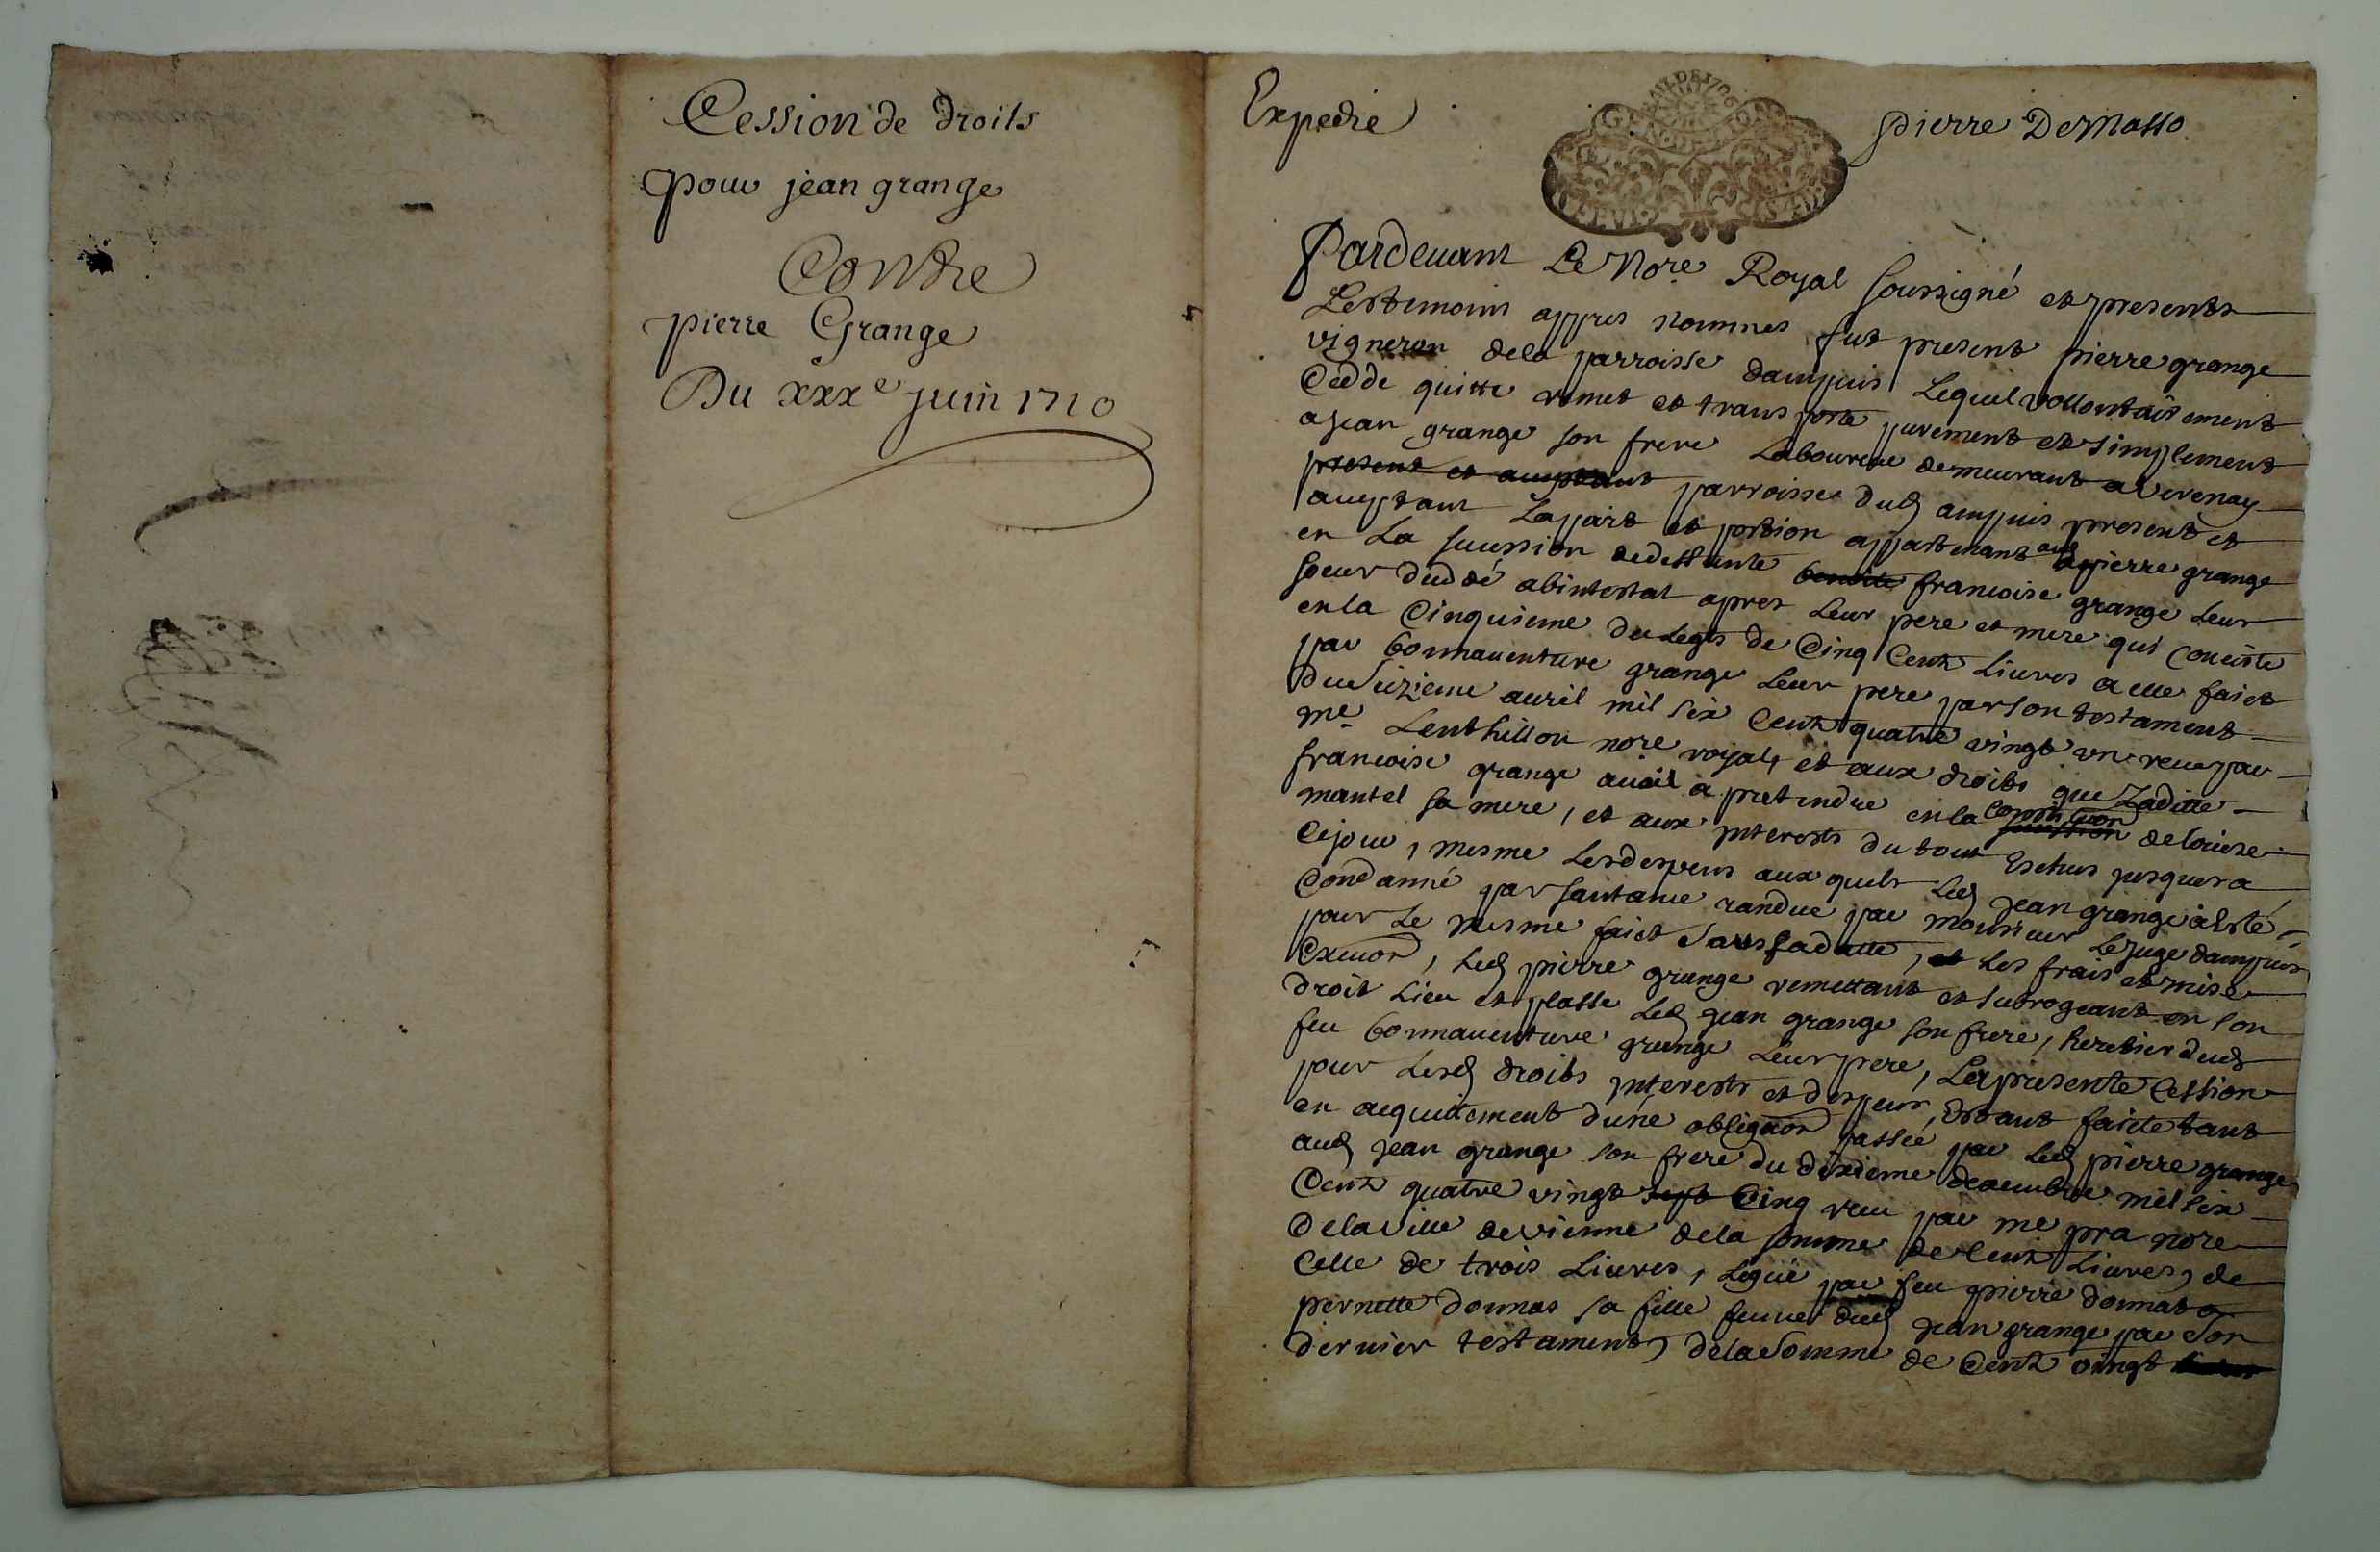 Cession de droits
pour jean grange
Contre
pierre Grange
Du xxxe juin 1710
Expedie
pierre DeMasso
Pardeuant Le Nore Royal soussigné et presents
Les temoins appres nommes fut present pierre grange
vigneron dela parroisse dampuis Lequel vollontairement
Cedde quitte remet et transporte purement et simplement
a jean grange son frere Laboureur demeurant a verenay
present et acceptant parroisse dud ampuis present et
acceptant La part et portion appartenant aud pierre grange
en La succession dedeffunte benoite francoise grange Leur
soeur deceddé abintestat apres Leur pere et mere qui conciste
en la Cinquieme du Legts de Cinq Cents Liures a elle faict
par bonnauenture grange Leur pere par son testament
du seizieme auril mil six Cents quatre vingt un receu par
me Lenthillon nore royal, et aux droits que Laditte
francoise grange auait a pretendre en la succession deloüise
mantel sa mere, et aux interests du tout Escheus jusques a
Cejour, mesme Lesdespens auxquels Led jean grange a esté
Condanné par santance randue par monsieur Le juge dampuis
pour Le mesme faict Sauf sad, et Les frais et mise
Exeuon, Led pierre grange remettant et subrogeant en son
droit Lieu et plasse Led jean grange son frere, heretier dud
feu bonnauenture grange Leur pere, La presente Cession
pour Lesd droits interests et despens, estant faicte tant
en acquittement d'une obligaon passée par Led pierre grange
aud jean grange son frere du dixieme decembre mil six
Cents quatre vingt sept Cinq receu par me pra nore
dela ville devienne dela somme de Cents Liures, de
Celle de trois Liures, Legüé par feu pierre donnat a
pernette donnas sa fille femme dud jean grange par son
dernier testament, dela somme de Cents vingt